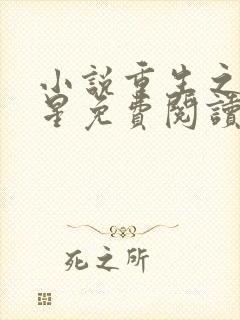 小説重生之
星免費閱讀
死之所